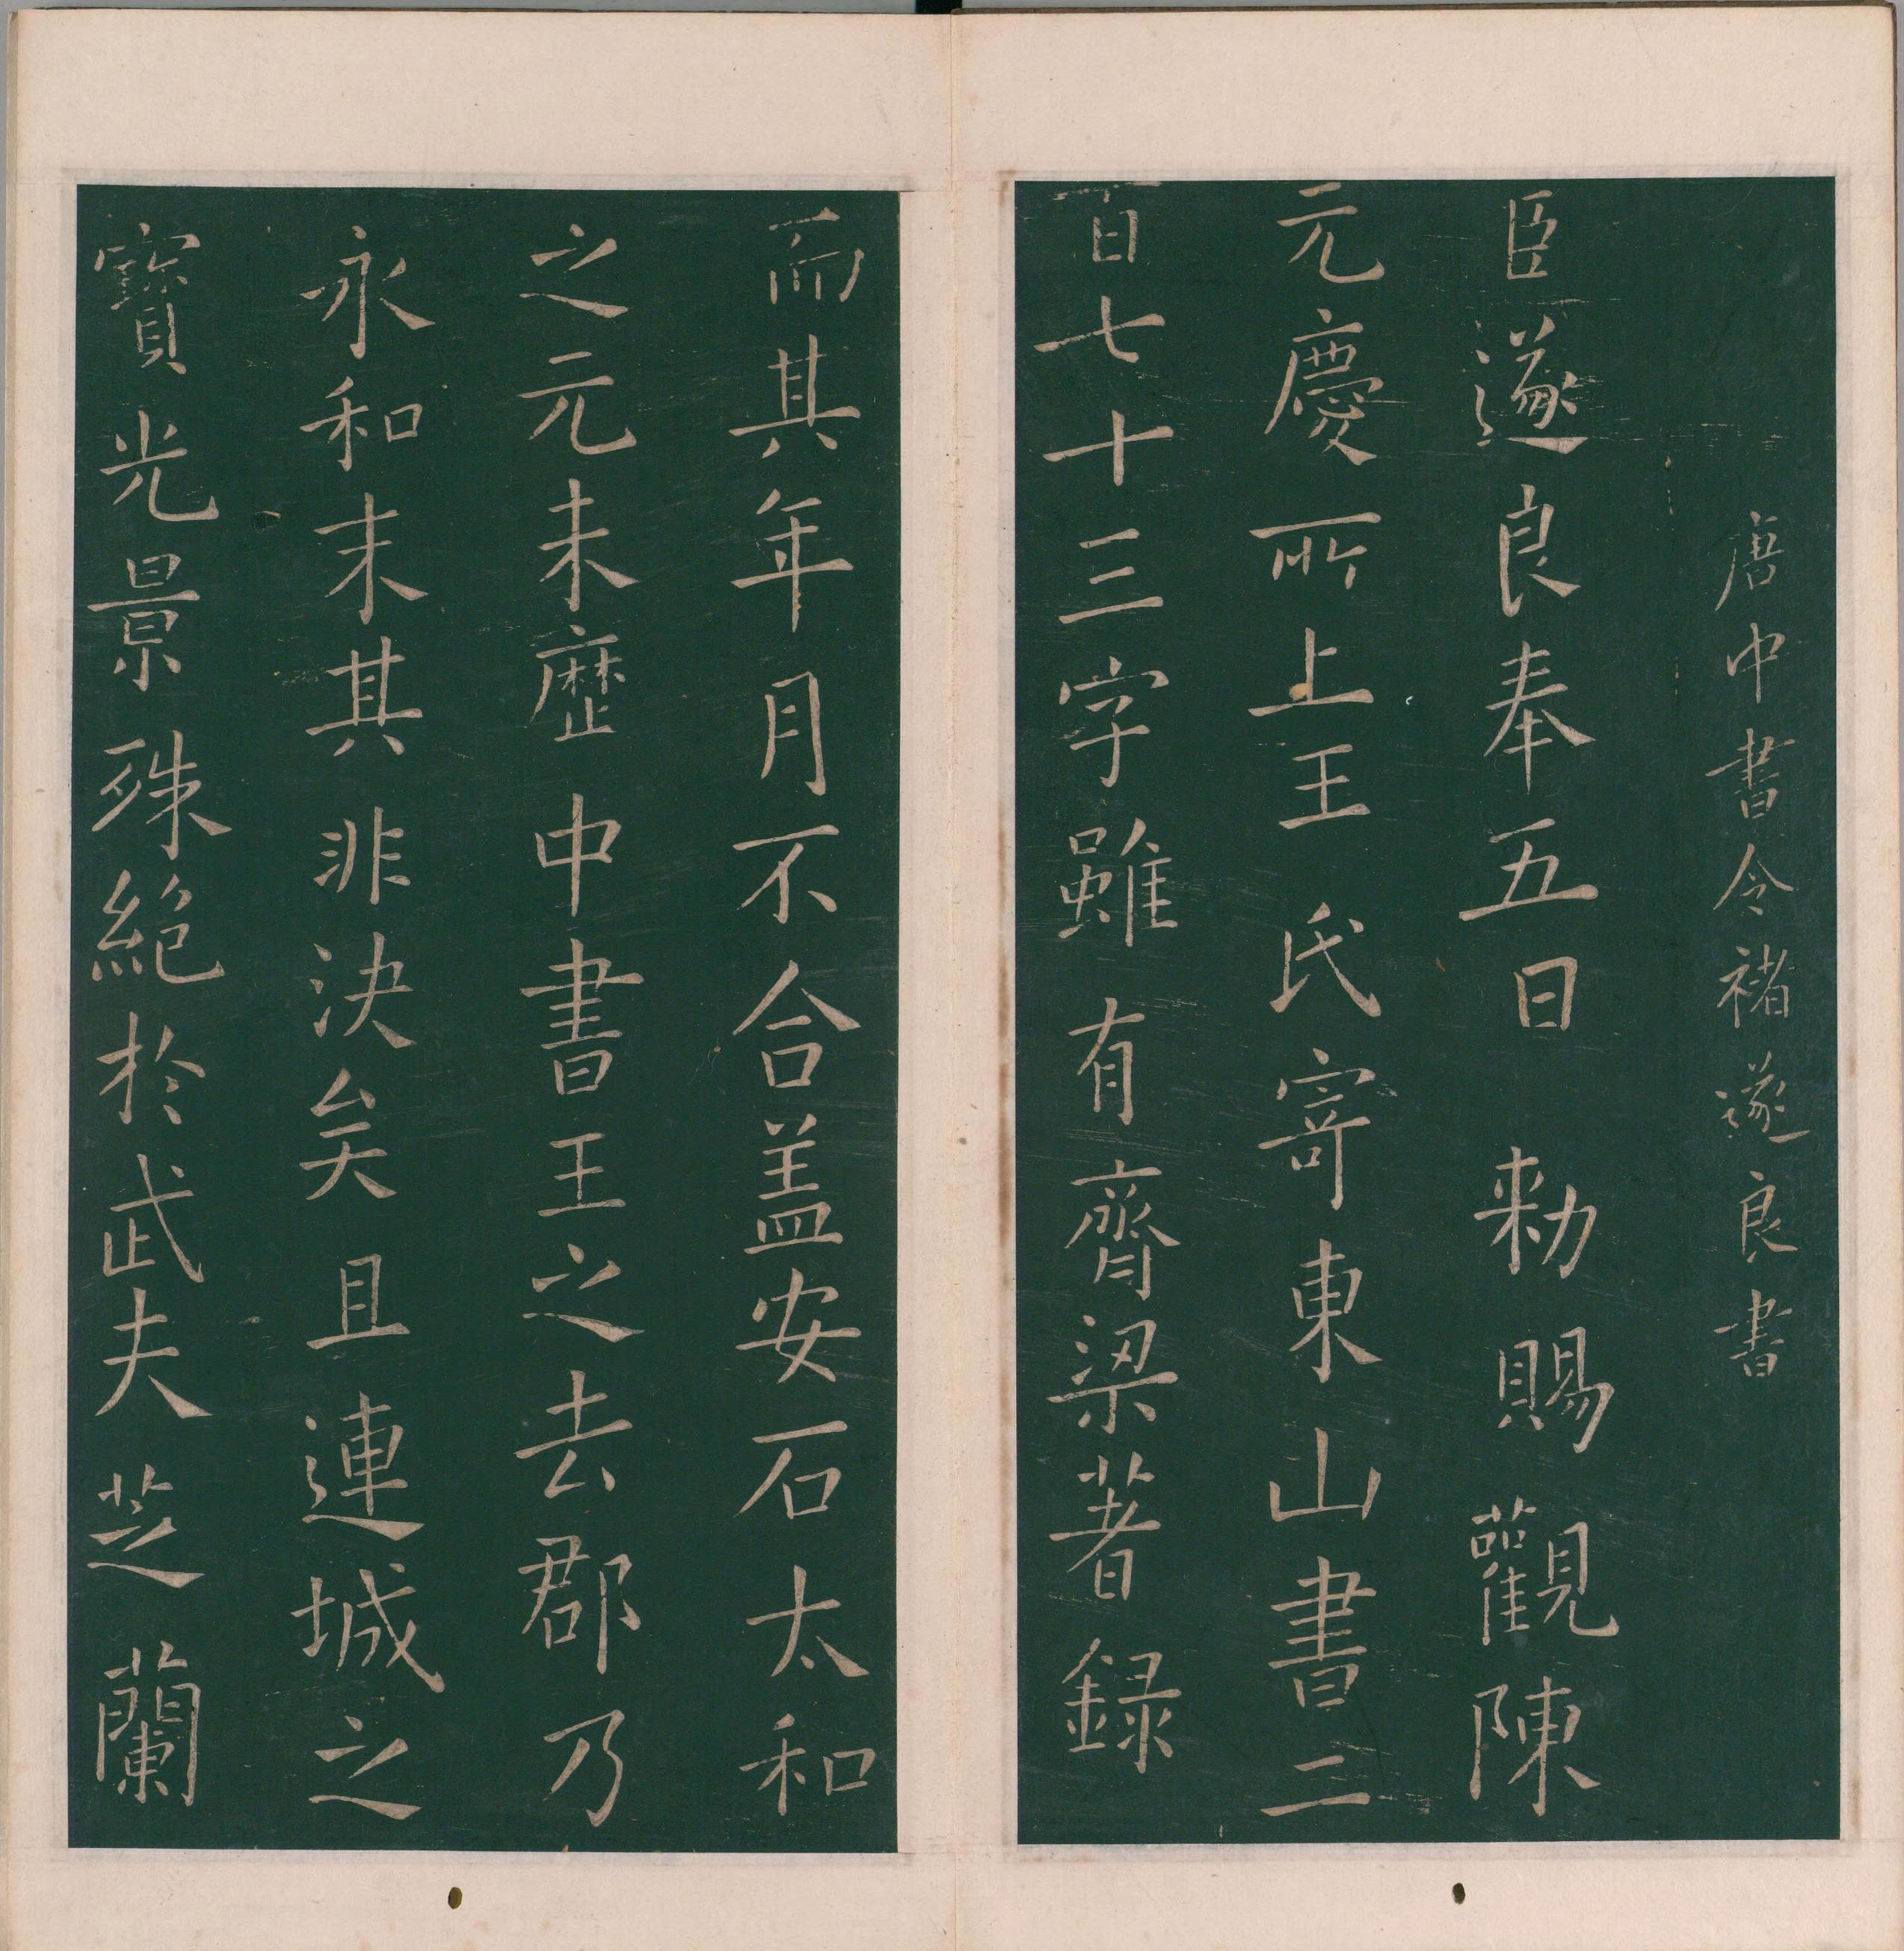 唐中書令褚遂良書
臣遂良奉五日勑賜觀陳
元慶所上王氏寄東山書二
百七十三字雖有齊梁著録
而其年月不合盖安石太和
之元未歴中書王之去郡乃
永和末其非決矣且連城之
寶光景殊絶於武夫芝蘭